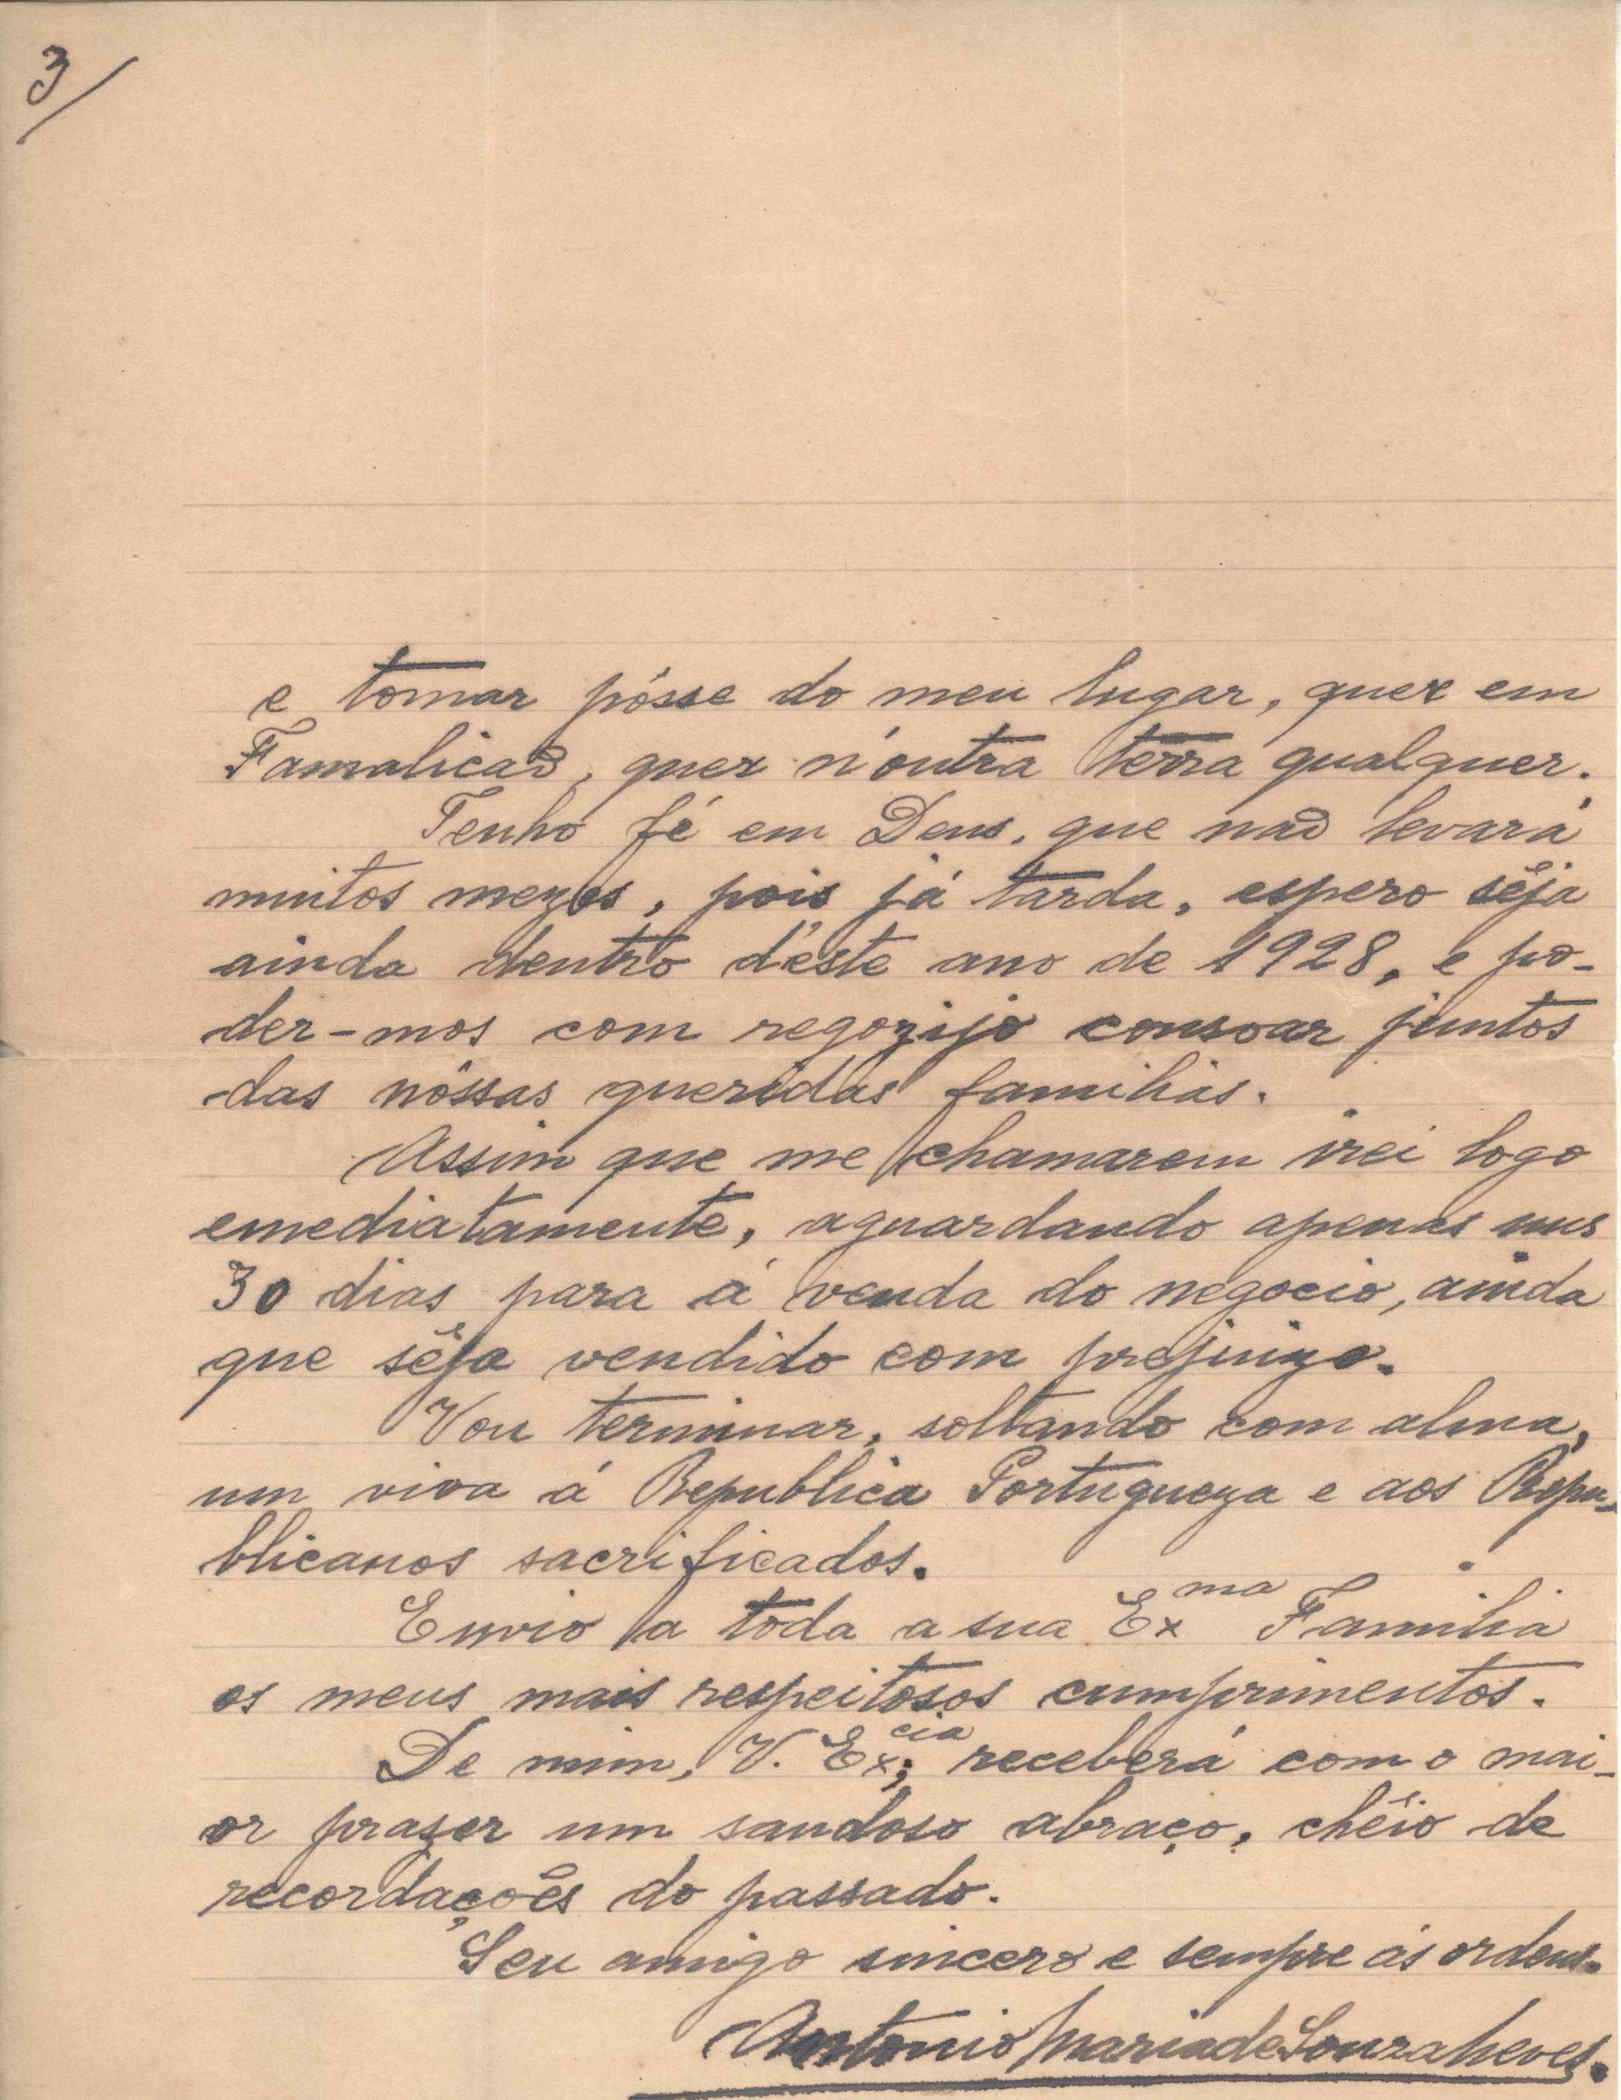 3/
e tomar pósse do meu lugar, quer em
Famalicaõ, quer n'outra terra qualquer.
Tenho fé em Deus, que naõ levará
muitos mezes, pois já tarda, espero sêja
ainda dentro d'éste ano de 1928, e po-
der-mos com regozijo consoar juntos
das nóssas queridas familias.
Assim que me chamarem irei logo
emediatamente, aguardando apenas uns
30 dias para á venda do negocio, ainda
que sêja vendido com prejuizo.
Vou terminar, soltando com alma,
um viva á Republica Portugueza e aos Repu-
blicanos sacrificados.
Envio a toda a sua Exma Familia
os meus mais respeitosos cumprimentos.
De mim, V. Excia; receberá com o mai-
or prazer um saudoso abraço, chêio de
recordações do passado.
Seu amigo sincero e sempre ás ordens.
Antonio Maria de Souza Neves.